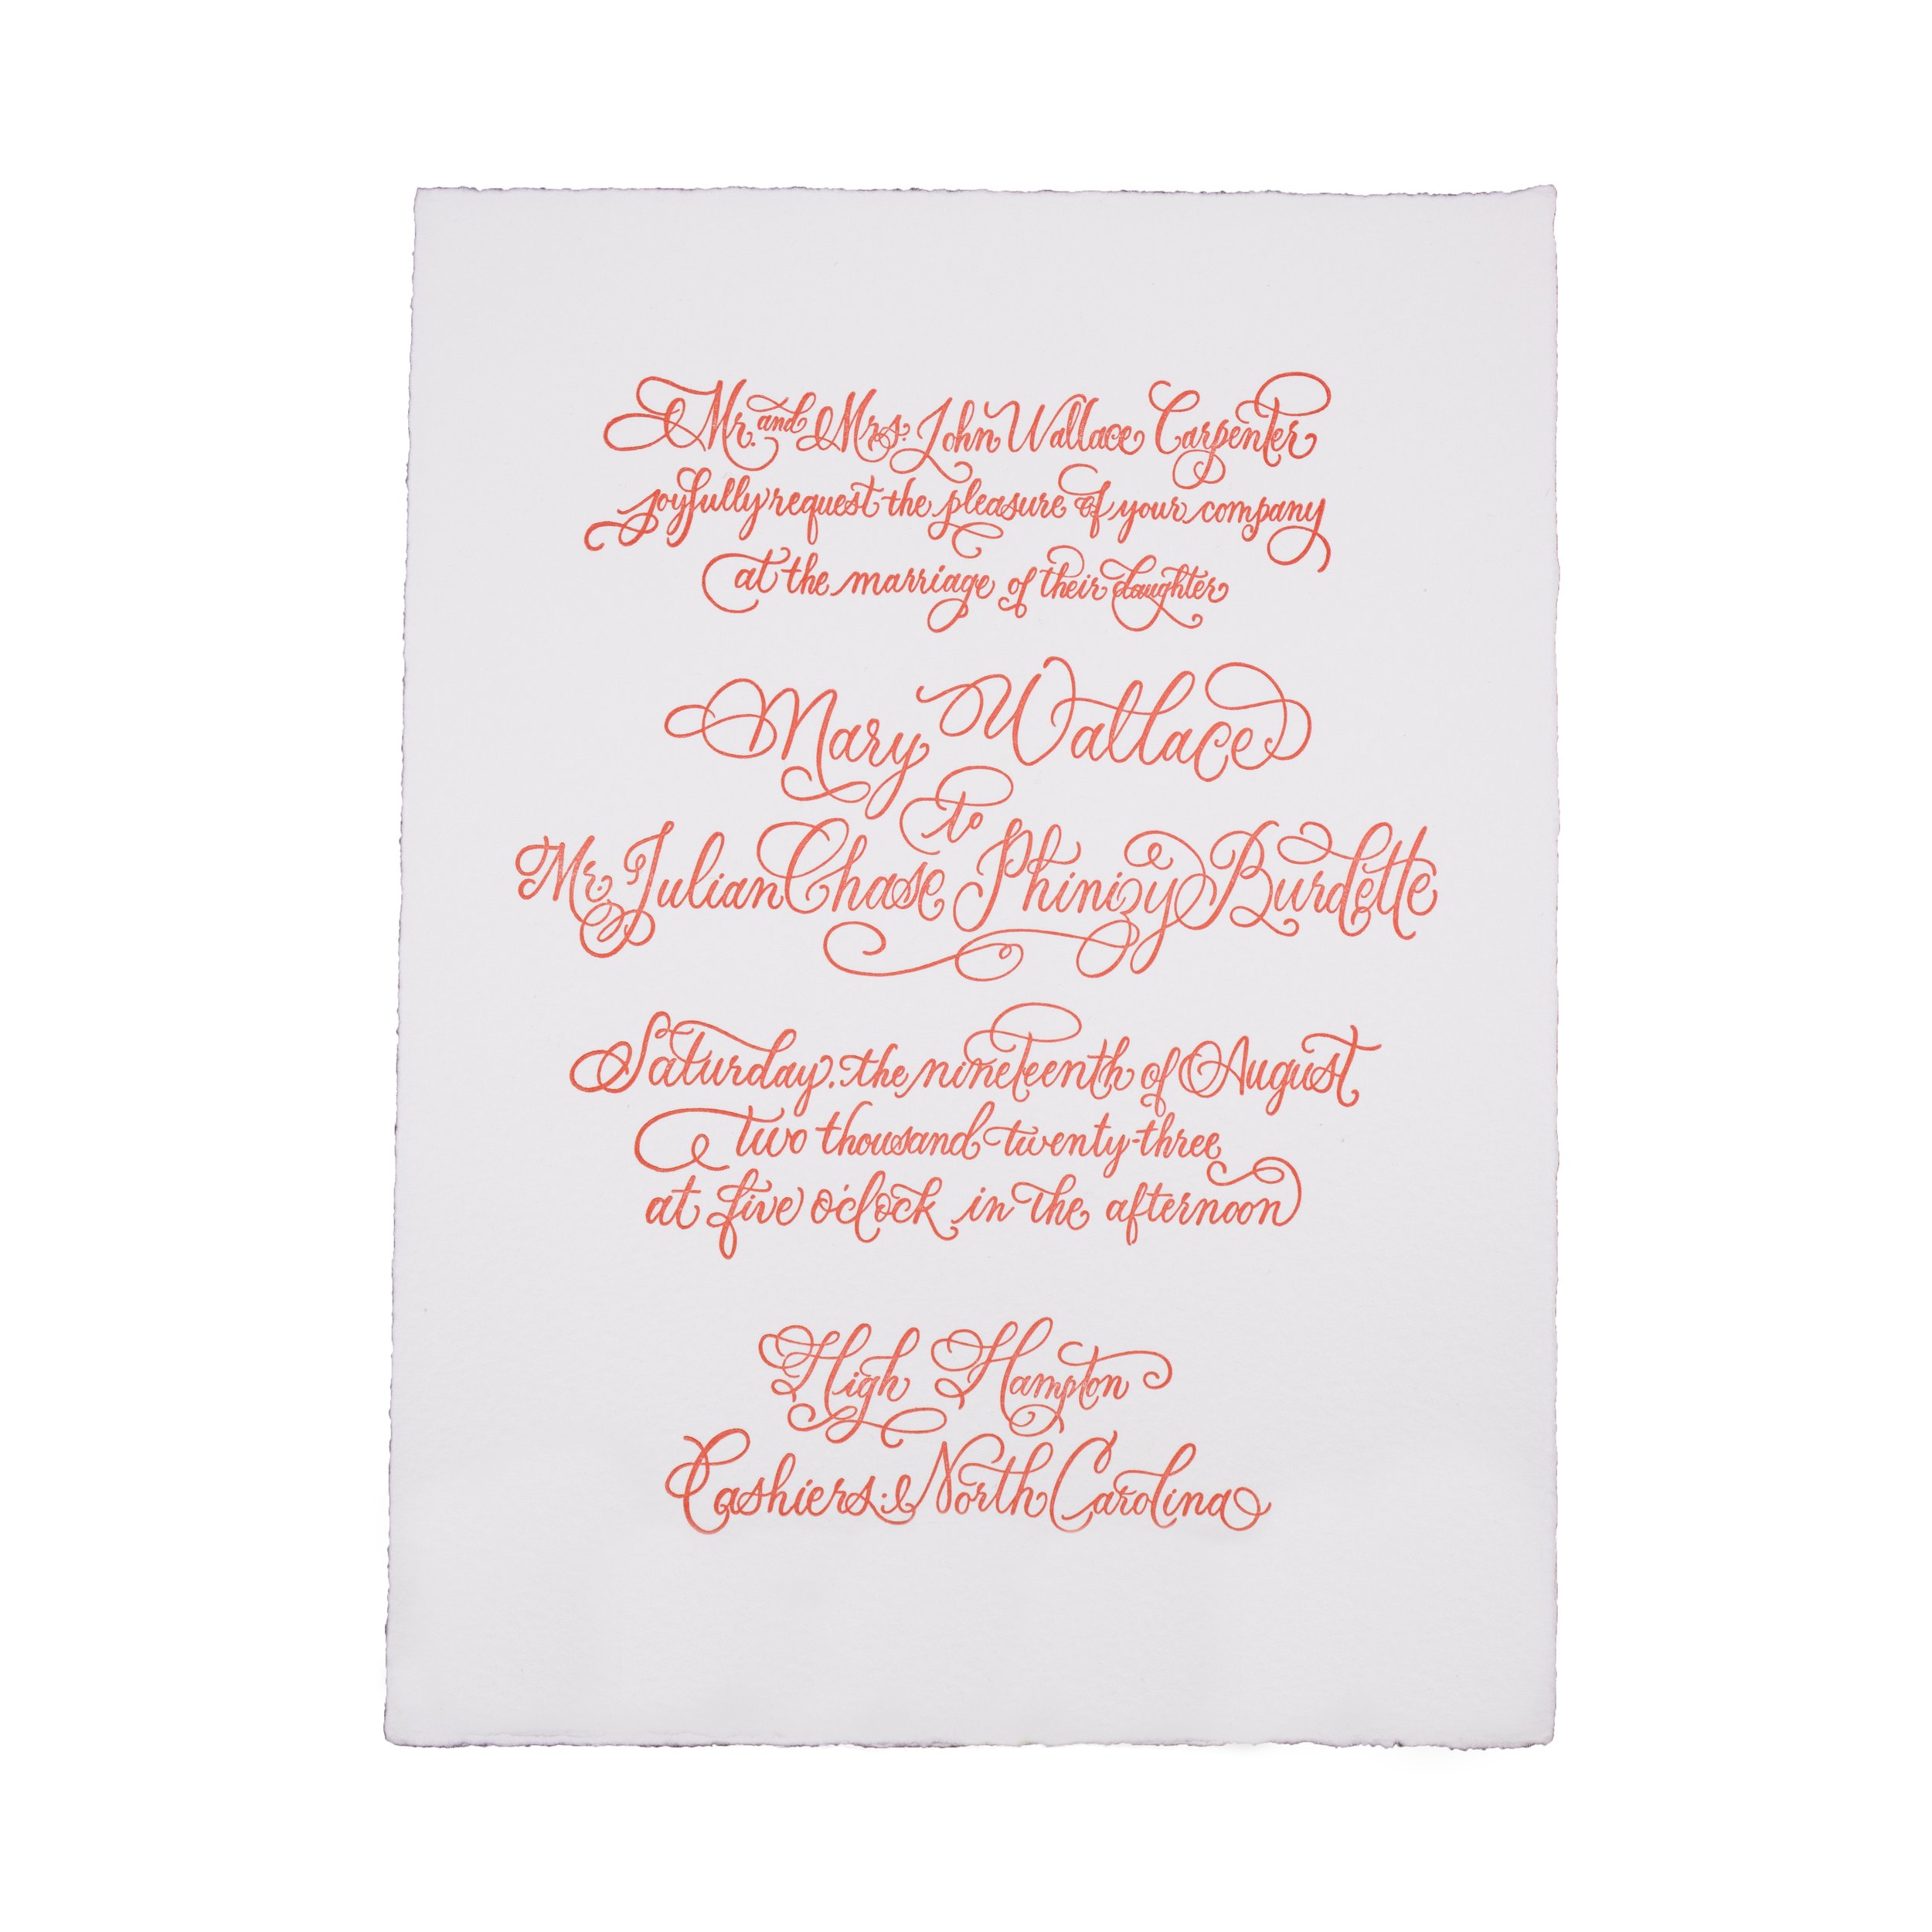 Mr. and Mrs. John Wallace Carpenter
joyfully request the pleasure of your company
at the marriage of their daughter
Mary Wallace
to
Mr. Julian Chase Phinizy Burdette
Saturday, the nineteenth of August
two thousand twenty-three
at five o'clock in the afternoon
High Hampton
Cashiers, North Carolina